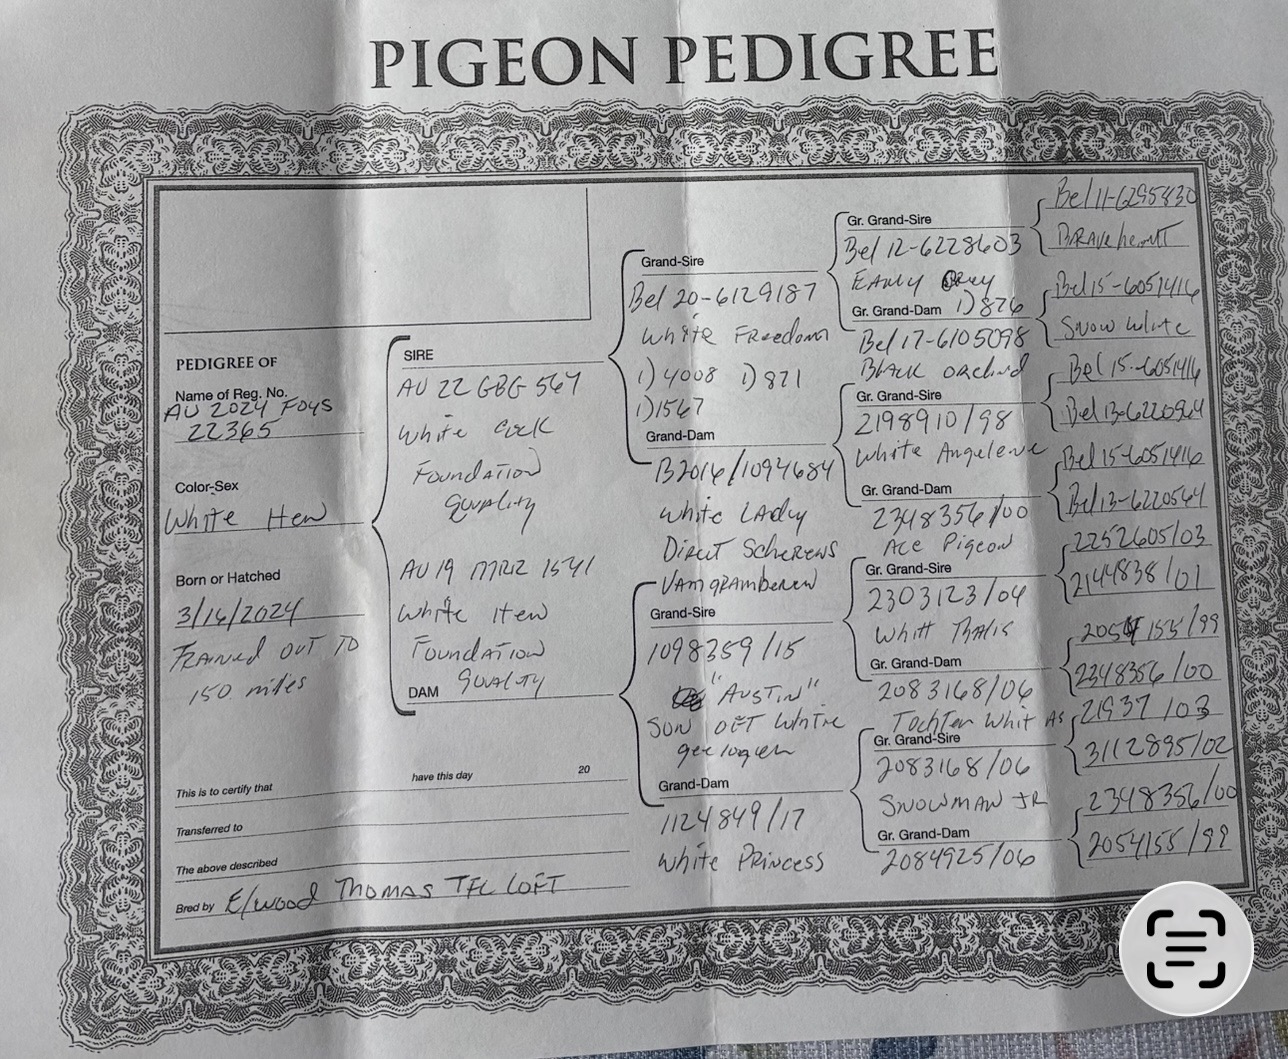 PIGEON PEDIGREE
PEDIGREE OF
Name of Reg. No.
AU 2024 FOYS
22365
Color-Sex
White Hen
Born or Hatched
3/16/2024
TRAINED OUT TO
150 miles
This is to certify that
have this day
20
Transferred to
The above described
Bred by Elwood Thomas TFL LOFT
SIRE
AU 22 GBG 567
White Cock
Foundation
Quality
AU 19 MRZ 1541
White Hen
Foundation
Quality
DAM
Grand-Sire
Bel 20-6129187
White Freedom
1) 4008 1) 821
1) 1567
Grand-Dam
B2016/1094684
White Lady
Direct Scherens
Grand-Sire
1098359/15
"AUSTIN"
SON OFT White
Grand-Dam
1124849/17
White PRINCESS
Gr. Grand-Sire
Bel 12-6228603
EARLY Grey
Gr. Grand-Dam 1) 826
Bel 17-6105098
Black Orchid
Gr. Grand-Sire
2198910/98
White Angelene
Gr. Grand-Dam
2348356/00
Ace Pigeon
Gr. Grand-Sire
2303123/04
Gr. Grand-Dam
2083168/06
Tochter Whit As
Gr. Grand-Sire
2083168/06
SNOWMAN JR
Gr. Grand-Dam
2084925/06
Bel 11-6295830
BRAVeheart
Bel 15-6051416
Snow White
Bel 15-6051416
Bel 13-6220564
Bel 15-6051416
Bel 13-6220564
2252605/03
2144838/01
2054155/99
2348356/00
21937/03
3112895/02
2348356/00
2054155/99